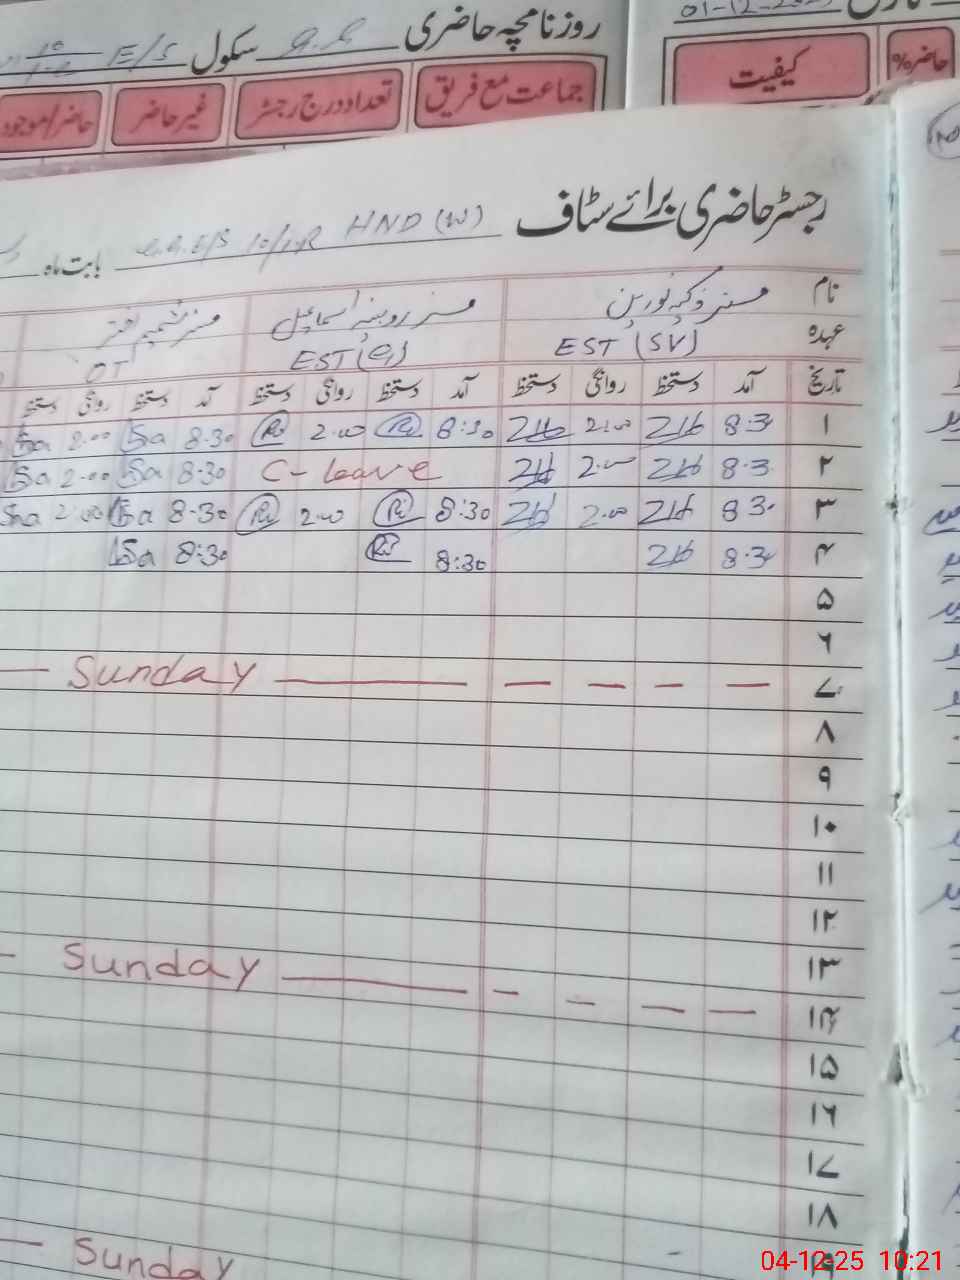 01-12-2025
روزنامچہ حاضری سکول G.G E/S
حاضر% کیفیت
جماعت مع فریق تعداد درج رجسٹر غیر حاضر حاضر/موجود
رجسٹر حاضری برائے سٹاف G.G.E/S 10/1.R HND (W) بابت ماہ
نام مسز ذکیہ نورین مسز روبینہ اسماعیل مسز شمیم اختر
عہدہ EST (SV) EST OT
تاریخ آمد دستخط روانگی دستخط آمد دستخط روانگی دستخط آمد دستخط روانگی دستخط
۱ 8.30 2.00 8:30 2.00 8.30 Sa 2.00 Sa
۲ 8.30 2.00 C-leave 8.30 Sa 2.00 Sa
۳ 8.30 2.00 8:30 2.00 8.30 Sa 2.00 Sa
۴ 8.30 8:30 8:30 Sa
۵
۶
۷ Sunday
۸
۹
۱۰
۱۱
۱۲
۱۳
۱۴ Sunday
۱۵
۱۶
۱۷
۱۸
۱۹
Sunday
04-12-25 10:21